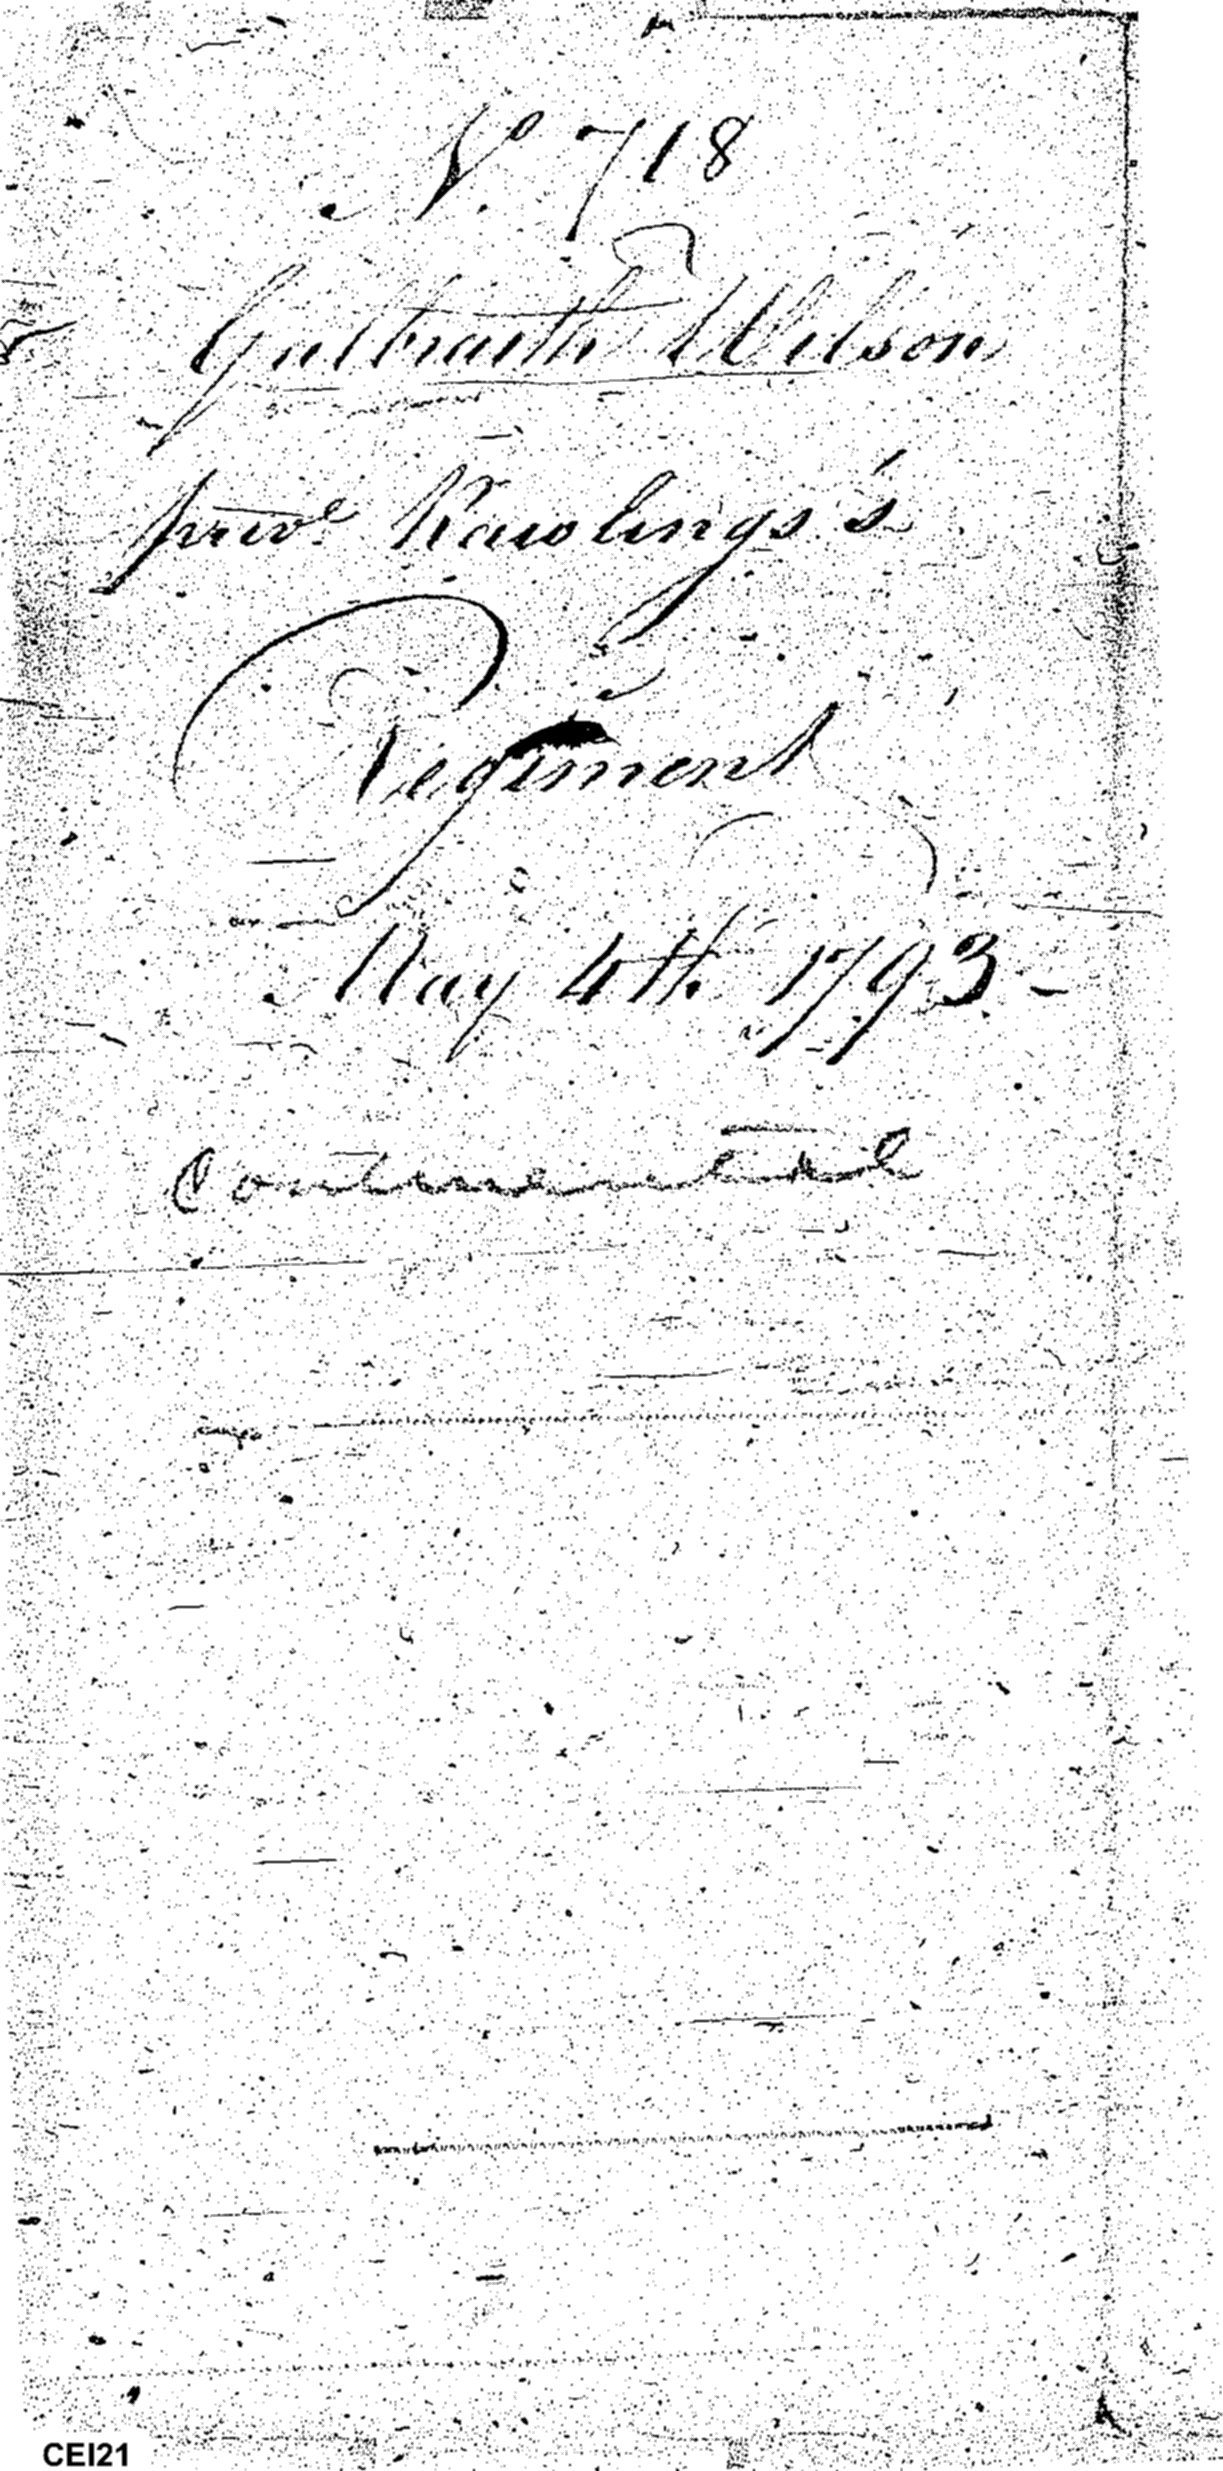 No. 718
Galbraith Wilson
prive. Rawlings's
Regiment
May 4th 1793 -
Continental
CEI21